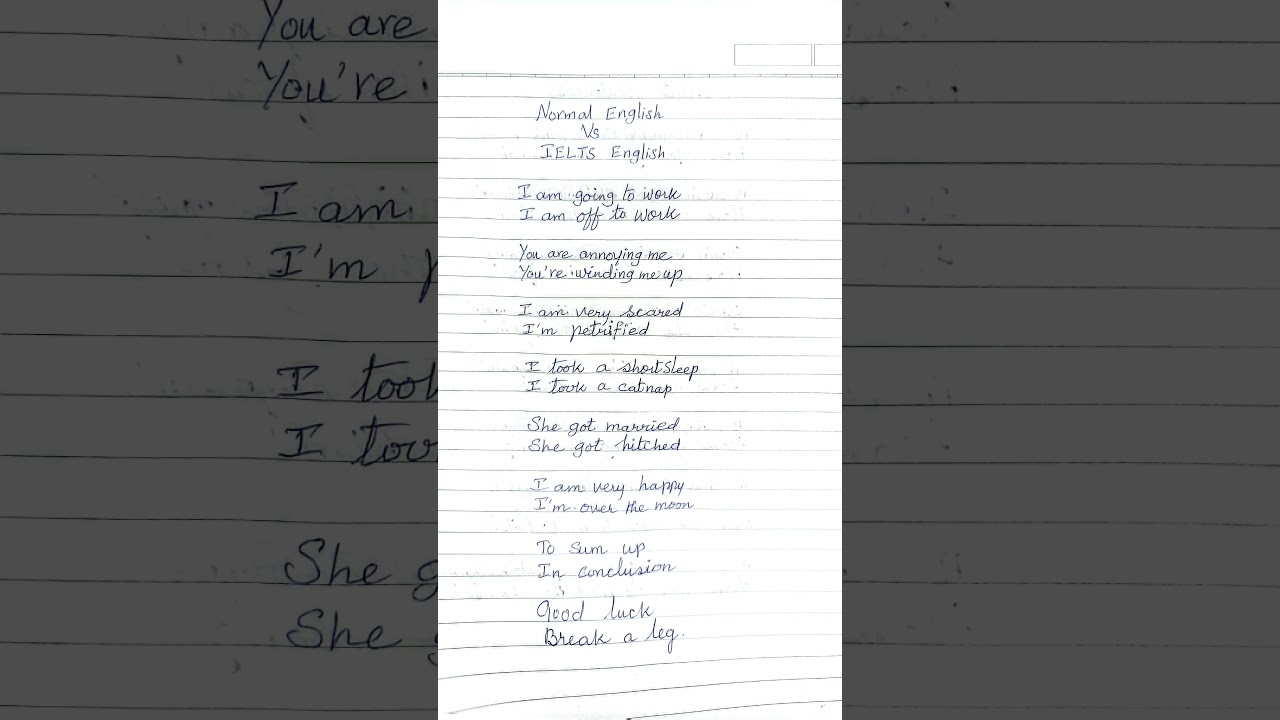 Normal English
Vs
IELTS English
I am going to work
I am off to work
You are annoying me
You're winding me up
I am very scared
I'm petrified
I took a short sleep
I took a catnap
She got married
She got hitched
I am very happy
I'm over the moon
To sum up
In conclusion
Good luck
Break a leg.